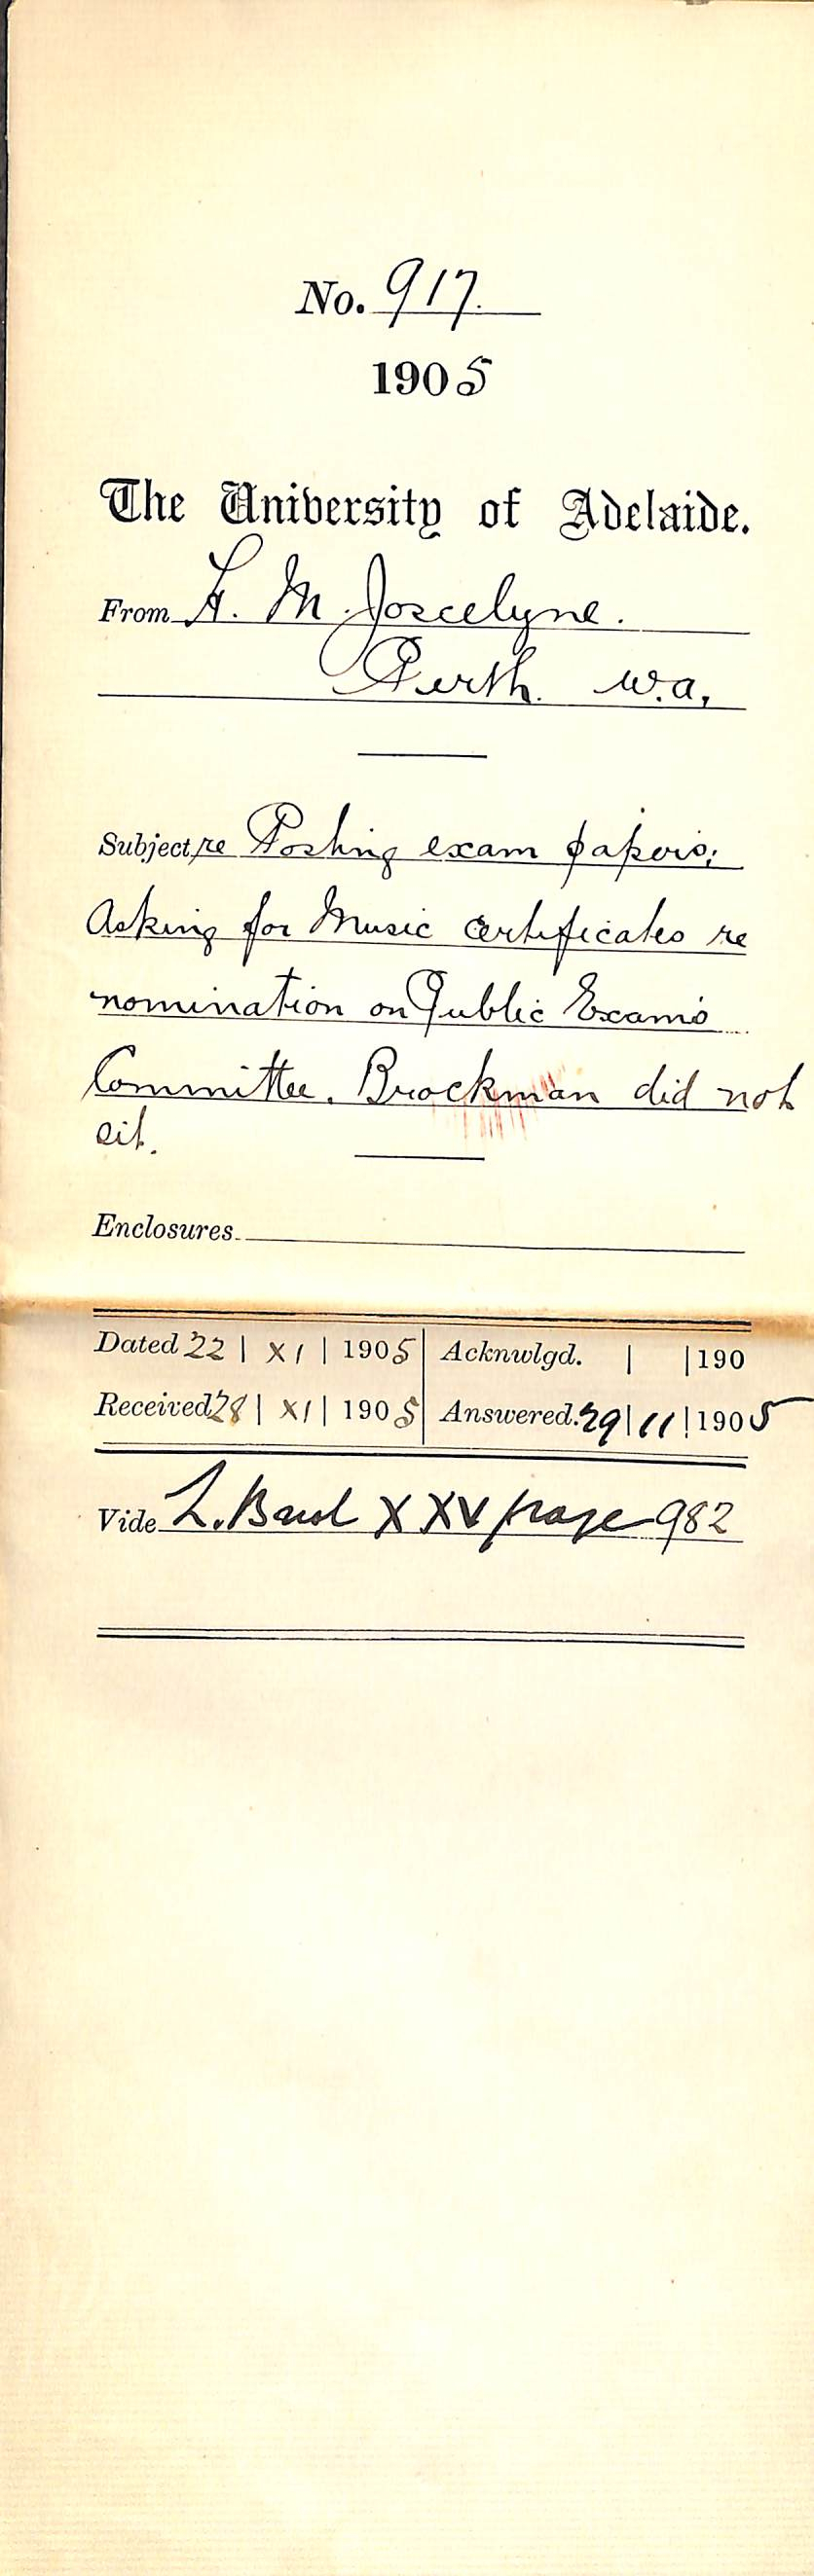 No. 917.
1905
The University of Adelaide.
From A. M. Joscelyne.
Perth. W.A.
Subject re Posting exam papers;
Asking for Music certificates re
nomination on Public Exams
Committee. Brockman did not
sit.
Enclosures
Dated 22 | XI | 1905 | Acknwlgd. | | 190
Received 28 | XI | 1905 | Answered. 29 | 11 | 1905
Vide L. XXV page 982